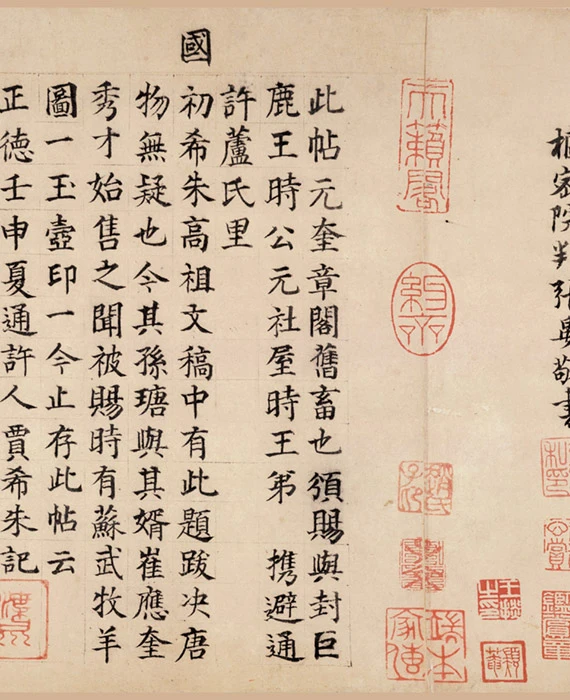 樞密院判張晏敬書
天籟閣
此帖元奎章閣舊畜也須賜與封巨
鹿王時公元社屋時王弟 携避通
許蘆氏里
國初希朱高祖文稿中有此題跋决唐
物無疑也今其孫瑭與其婿崔應奎
秀才始售之聞被賜時有蘇武牧羊
圖一玉壺印一今止存此帖云
正德壬申夏通許人賈希朱記